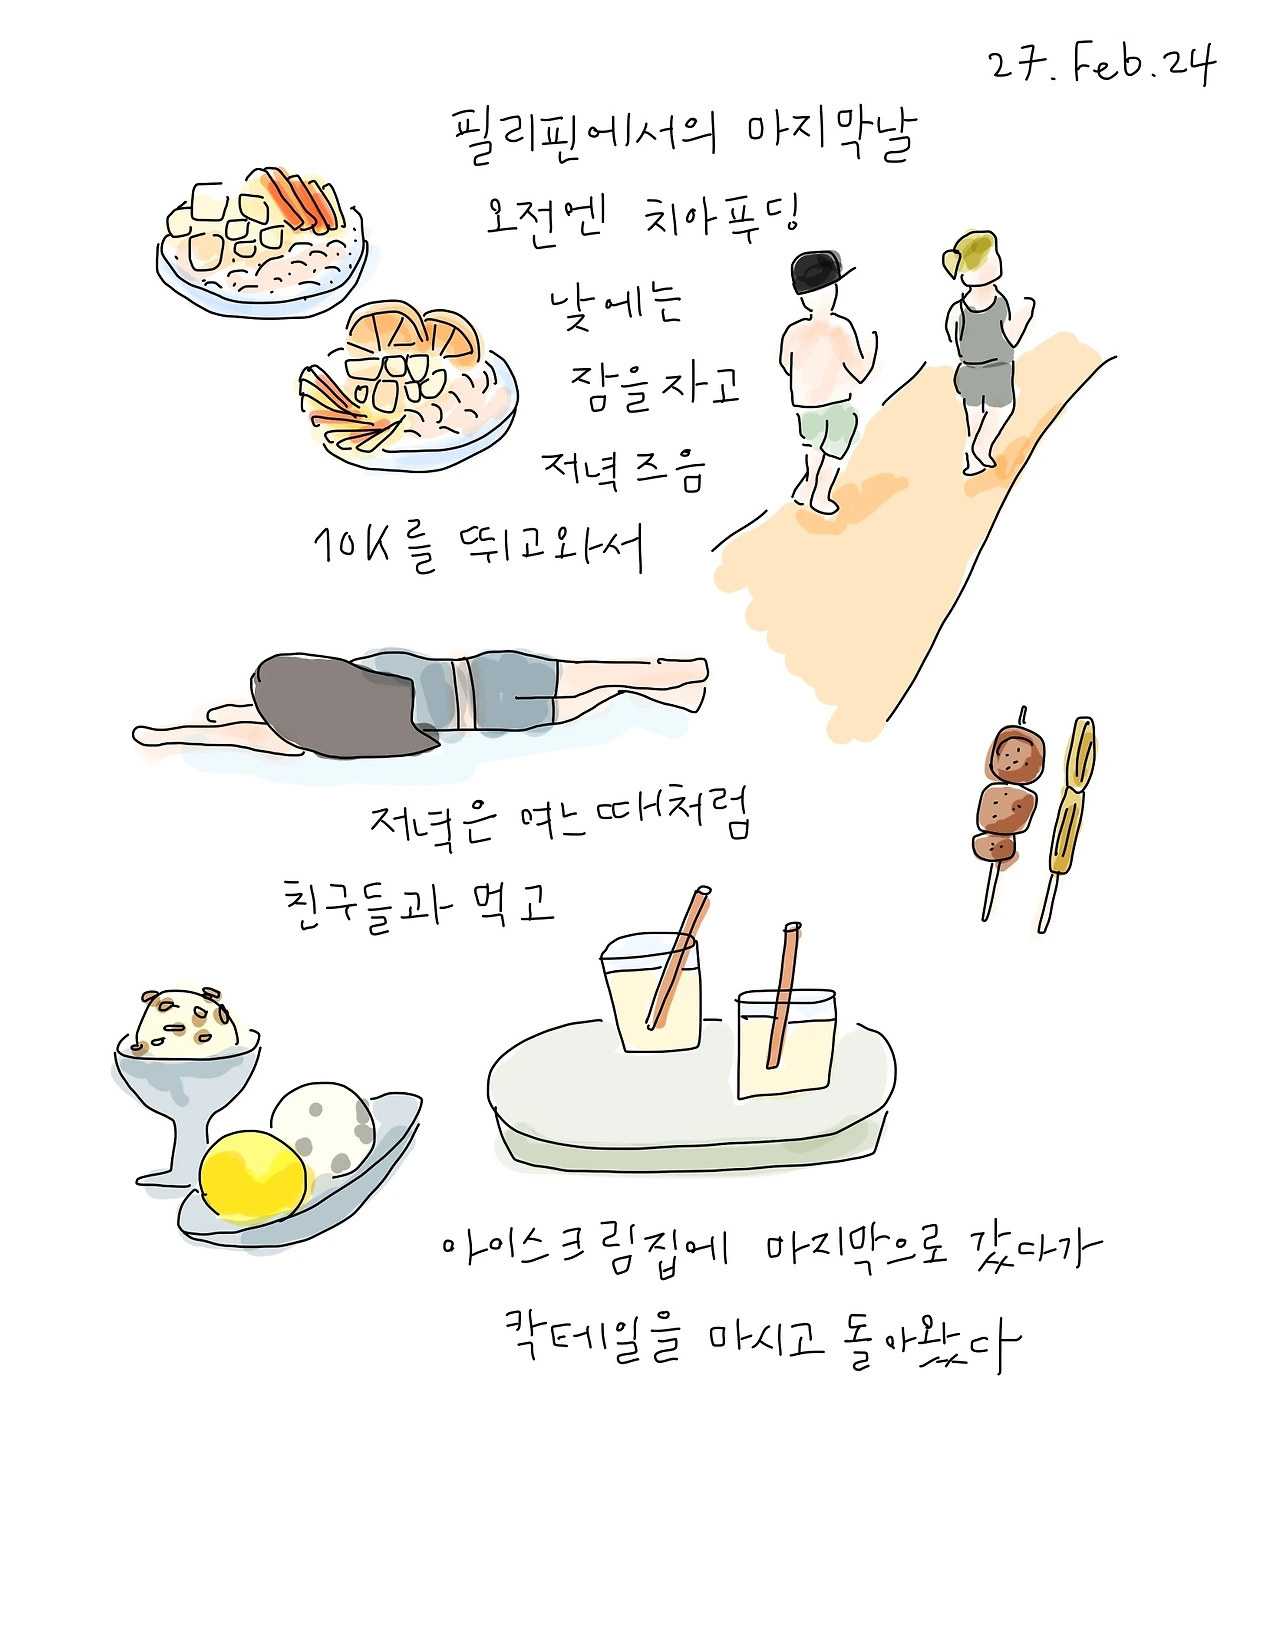 27. Feb. 24
필리핀에서의 마지막날
오전엔 치아푸딩
낮에는
잠을자고
저녁즈음
10K를 뛰고와서
저녁은 여느때처럼
친구들과 먹고
아이스크림집에 마지막으로 갔다가
칵테일을 마시고 돌아왔다